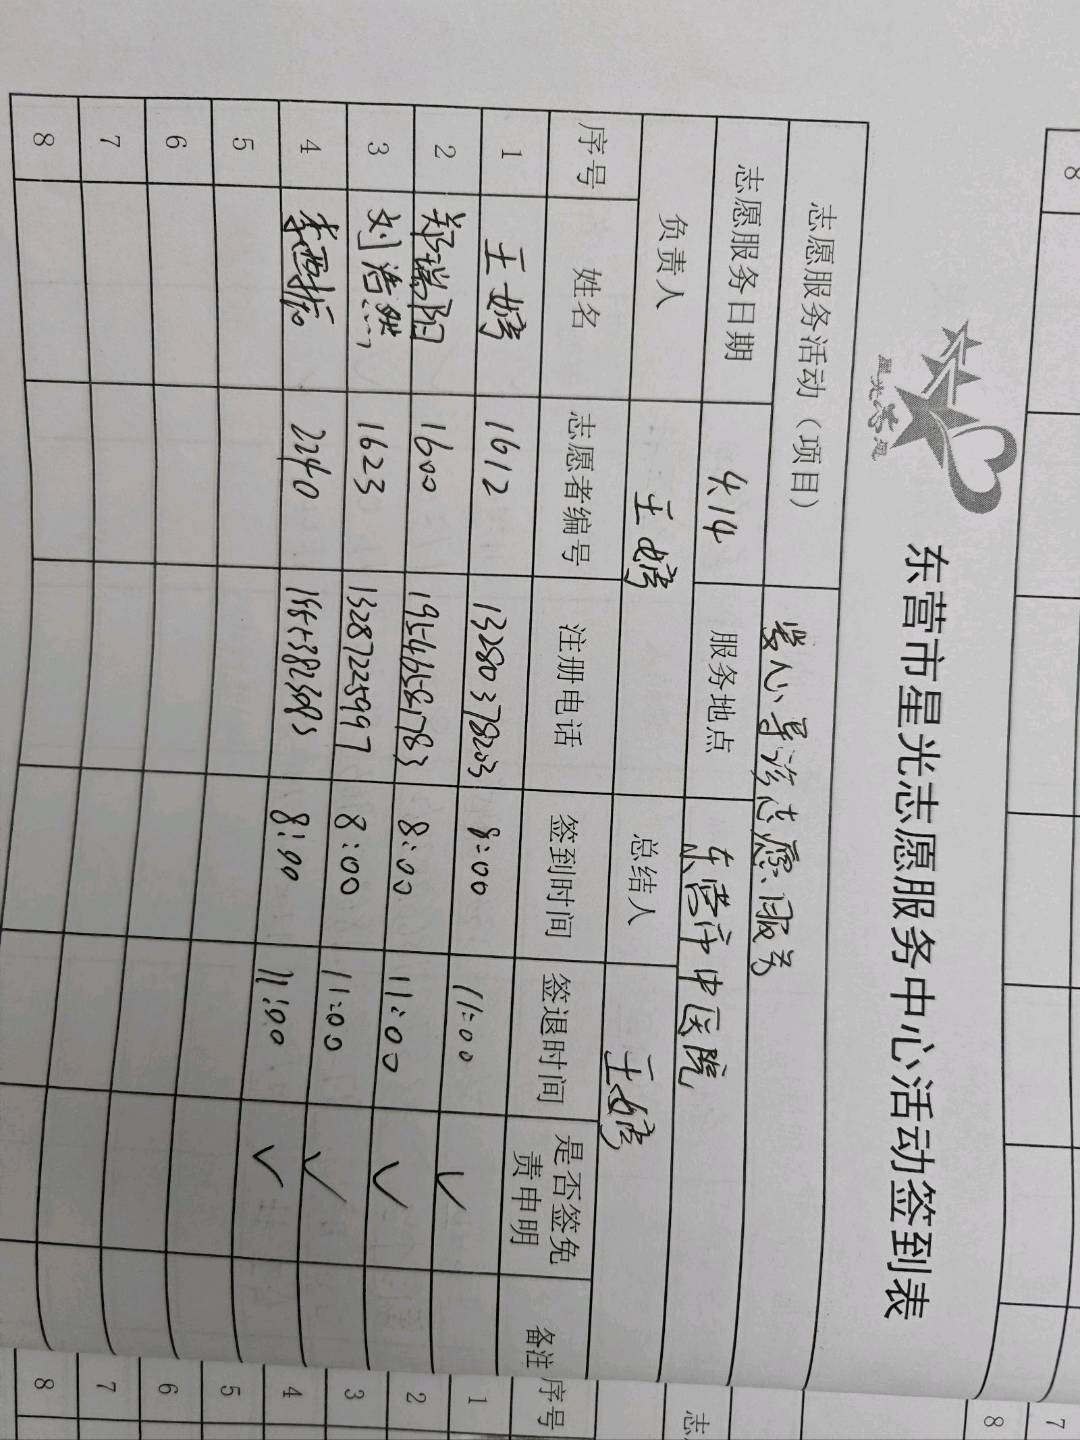 东营市星光志愿服务中心活动签到表
志愿服务活动（项目） 爱心导诊志愿服务
志愿服务日期 4.14 服务地点 东营市中医院
负责人 王婷 总结人 王婷
序号 姓名 志愿者编号 注册电话 签到时间 签退时间 是否签免责申明 备注
1 王婷 1612 13280378203 8:00 11:00 ✓
2 郑瑞阳 1600 19546581783 8:00 11:00 ✓
3 刘浩然 1623 13287225997 8:00 11:00 ✓
4 2240 8:00 11:00 ✓
5
6
7
8
志
序号
1
2
3
4
5
6
7
8
8
7
8